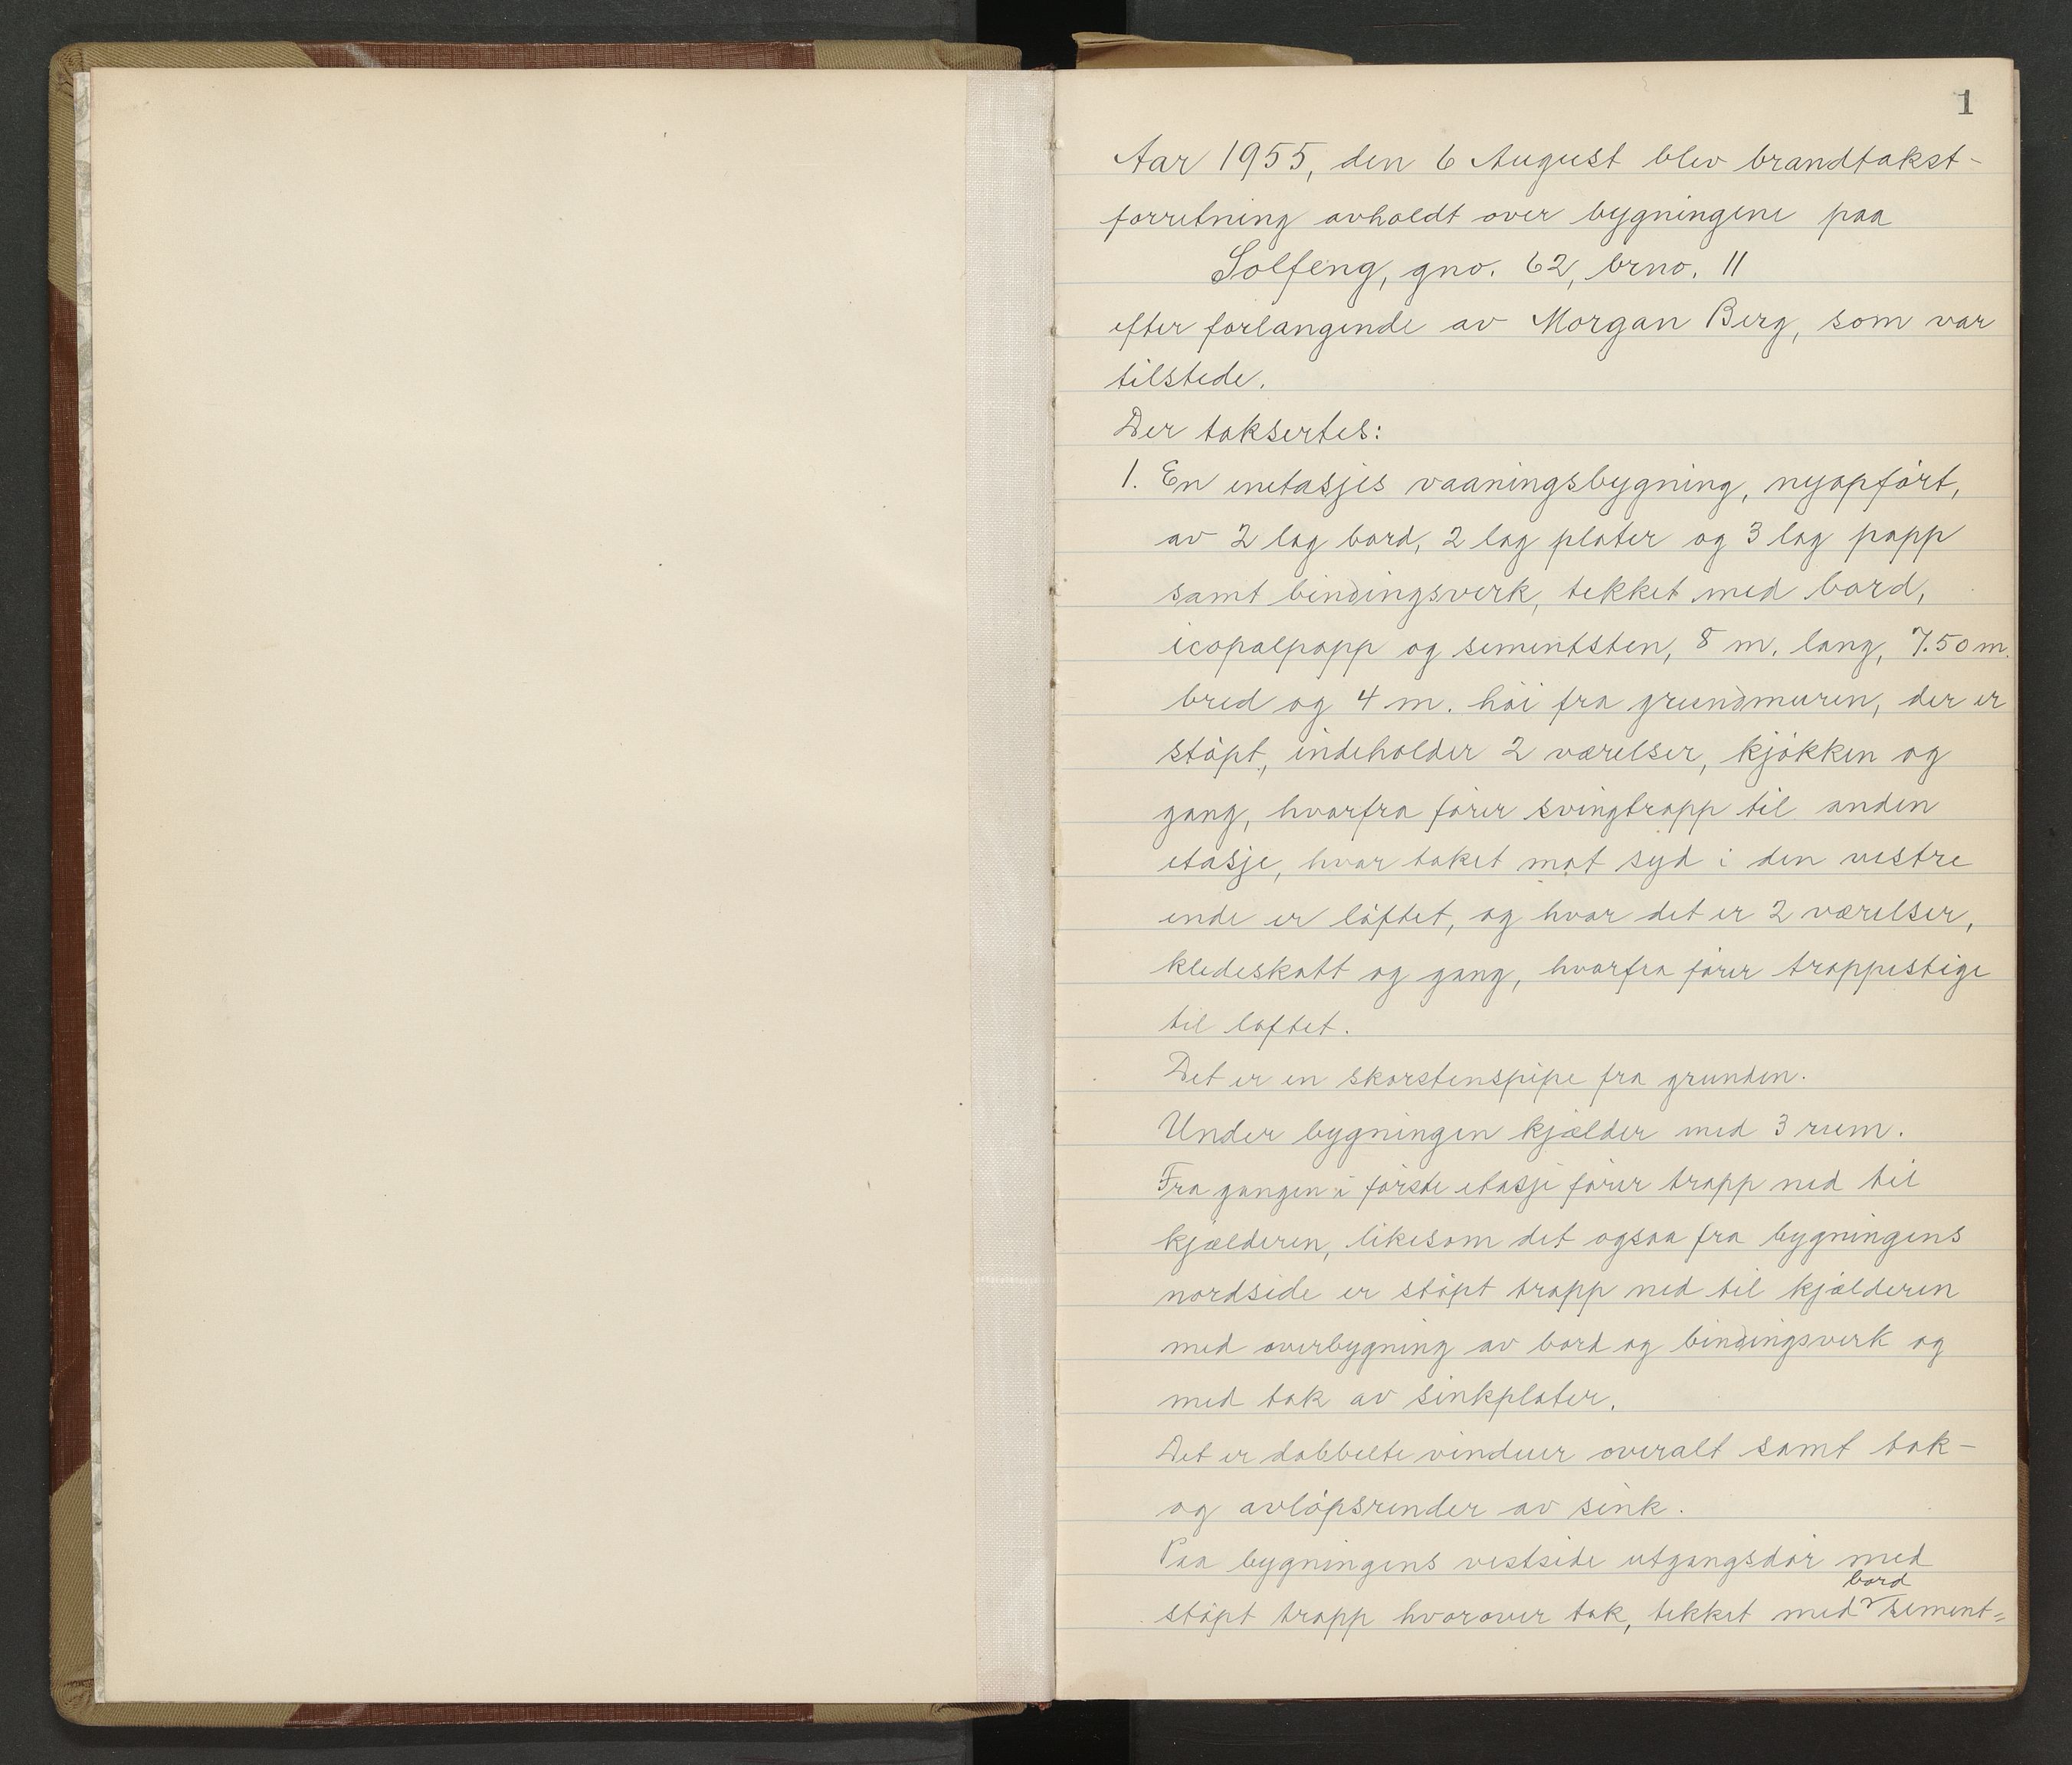 1
Aar 1955, den 6 August blev brandtakst-
forretning avholdt over bygningene paa
Solfeng, gno. 62, brno. 11
efter forlangende av Morgan Berg, som var
tilstede.
Der taksertes:
1. En enetasjes vaaningsbygning, nyopført,
av 2 lag bord, 2 lag plater og 3 lag papp
samt bindingsverk, tekket med bord,
icopalpapp og sementsten, 8 m. lang, 7.50 m.
bred og 4 m. høi fra grundmuren, der er
støpt, indeholder 2 værelser, kjøkken og
gang, hvorfra fører svingtrapp til anden
etasje, hvor taket mot syd i den vestre
ende er løftet, og hvor det er 2 værelser,
kledeskott og gang, hvorfra fører trappestige
til loftet.
Det er en skorstenspipe fra grunden.
Under bygningen kjælder med 3 rum.
Fra gangen i første etasje fører trapp ned til
kjælderen, likesom det ogsaa fra bygningens
nordside er støpt trapp ned til kjælderen
med overbygning av bord og bindingsverk og
med tak av sinkplater.
Det er dobbelte vinduer overalt samt tak-
og avløpsrender av sink.
Paa bygningens vestside utgangsdør med
bord
støpt trapp hvorover tak, tekket med sement=